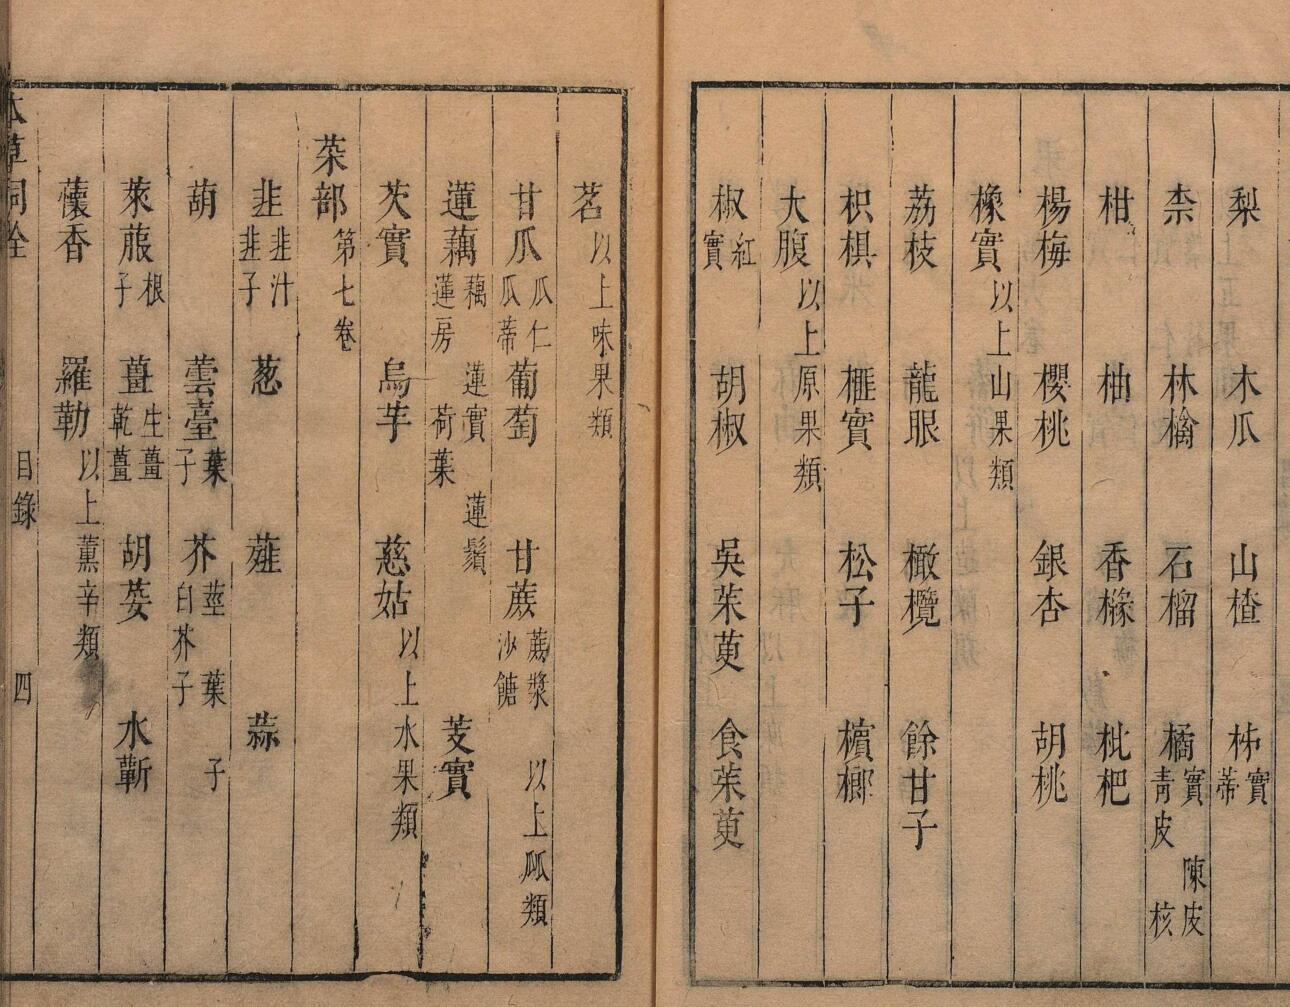 梨 木瓜 山楂 柹實蒂
柰 林檎 石榴 橘實 陳皮 青皮 核
柑 柚 香櫞 枇杷
楊梅 櫻桃 銀杏 胡桃
橡實以上山果類
荔枝 龍眼 橄欖 餘甘子
枳椇 榧實 松子 檳榔
大腹以上原果類
椒紅實 胡椒 吳茱萸 食茱萸
茗以上味果類
甘瓜瓜仁瓜蒂 葡萄 甘蔗蔗漿沙餹 以上瓜類
蓮藕藕 蓮實 蓮鬚 蓮房 荷葉 芰實
芡實 烏芋 慈姑以上水果類
菜部第七卷
韭韭汁韭子 葱 薤 蒜
葫 蕓薹葉子 芥莖 葉 子 白芥子
萊菔根子 薑生薑乾薑 胡荽 水蘄
蘹香 羅勒以上薰辛類
本草洞詮 目錄 四